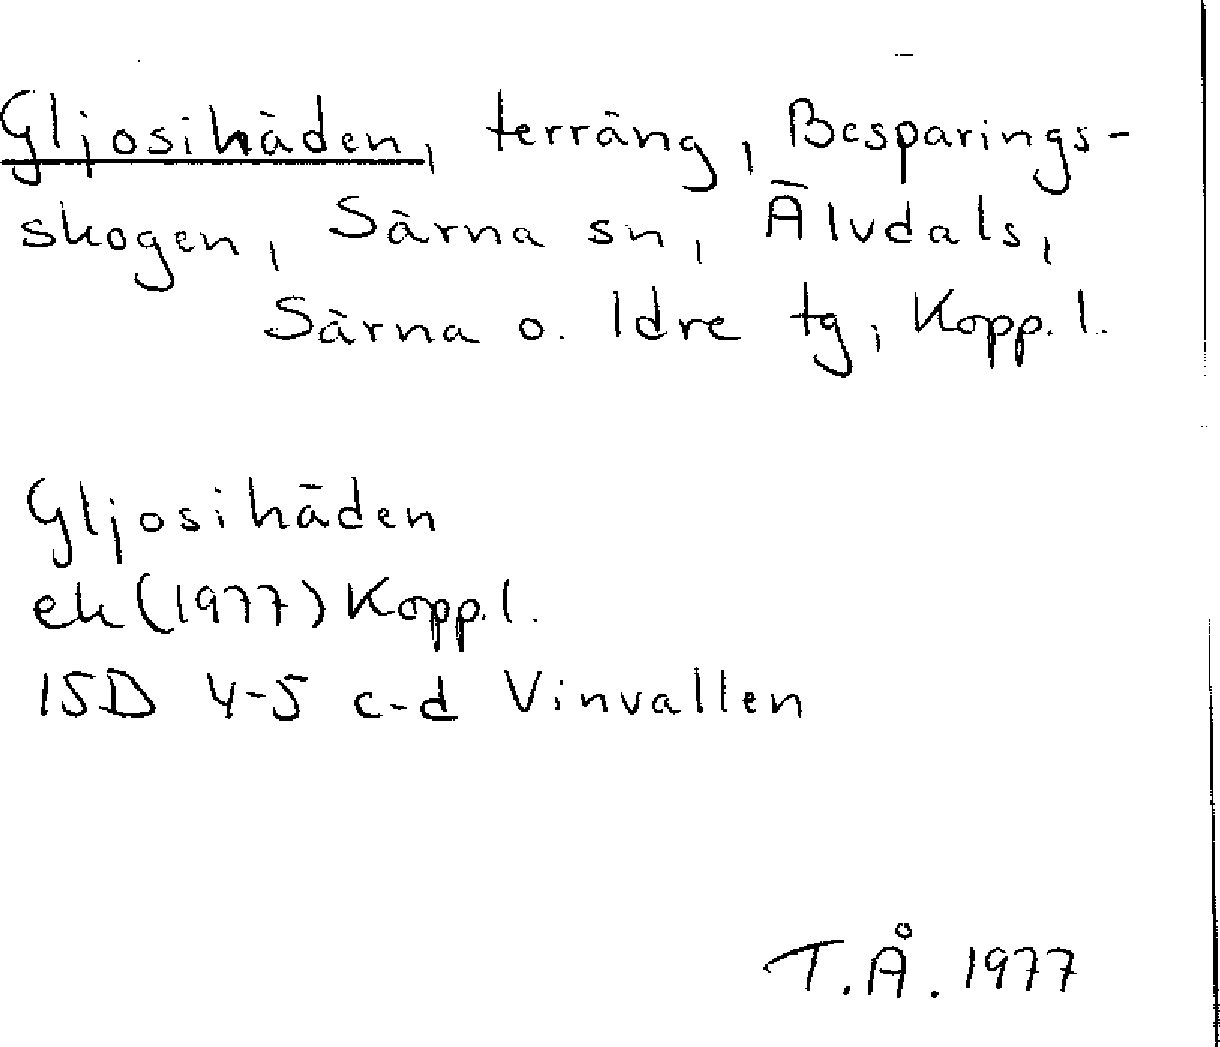 Gljosihäden, terräng, Besparings-
skogen, Särna sn, Älvdals,
Särna o. Idre tg, Kopp. l.
Gljosihäden
ek (1977) Kopp. l.
15D 4-5 c-d Vinvallen
T.Å. 1977